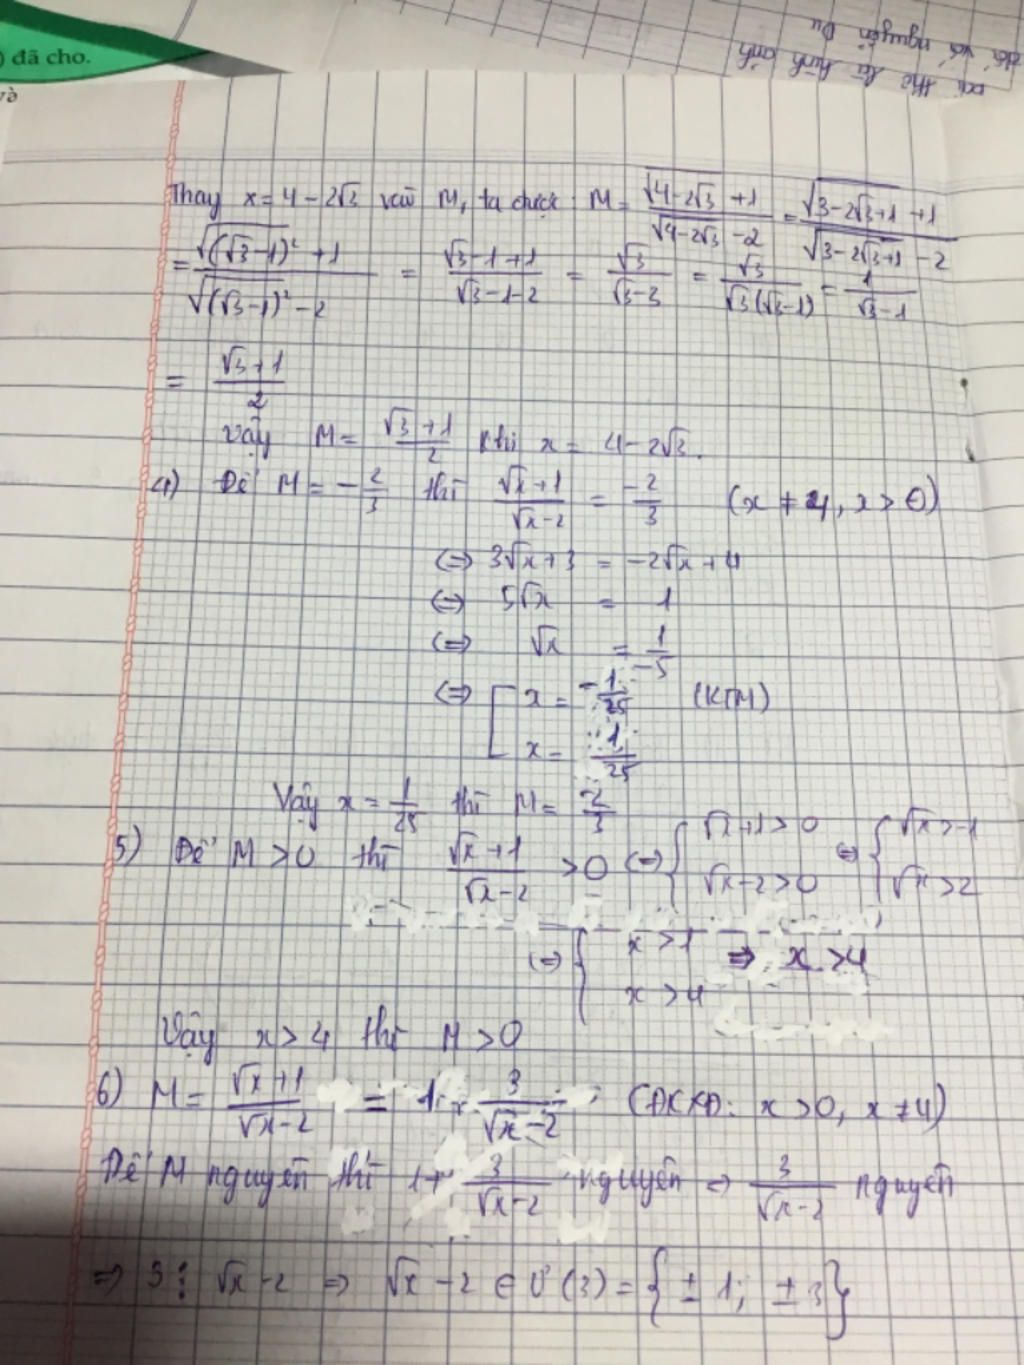 ) đã cho.
và
đối với nguyễn Du
Thay x = 4 - 2√3 vào M, ta được: M = (√(4-2√3) + 1)/(√(4-2√3) - 2) = (√(3-2√3+1) + 1)/(√(3-2√3+1) - 2)
= (√((√3-1)²) + 1)/(√((√3-1)²) - 2) = (√3-1+1)/(√3-1-2) = √3/(√3-3) = √3/(√3(√3-1)) = 1/(√3-1)
= (√3+1)/2
Vậy M = (√3+1)/2 khi x = 4-2√3.
4) Để M = -2/3 thì (√x+1)/(√x-2) = -2/3 (x ≠ 4, x > 0)
⇔ 3√x+3 = -2√x+4
⇔ 5√x = 1
⇔ √x = 1/5
⇔ [ x = -1/25 (KTM)
x = 1/25
Vậy x = 1/25 thì M = -2/3
5) Để M > 0 thì (√x+1)/(√x-2) > 0 ⇔ { √x+1 > 0 ; √x-2 > 0 ⇔ { √x > -1 ; √x > 2
⇔ { x > 1 ; x > 4 ⇒ x > 4
Vậy x > 4 thì M > 0
6) M = (√x+1)/(√x-2) = 1 + 3/(√x-2) (ĐKXĐ: x > 0, x ≠ 4)
Để M nguyên thì 1 + 3/(√x-2) nguyên ⇒ 3/(√x-2) nguyên
⇒ 3 ⋮ √x-2 ⇒ √x-2 ∈ Ư(3) = {±1; ±3}